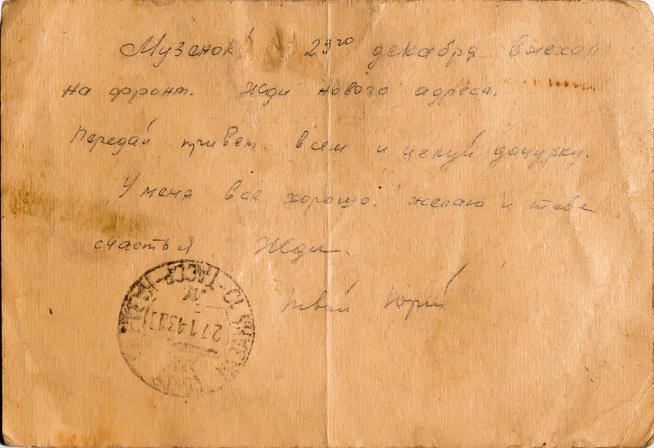 Музенок! 29го декабря выехал
на фронт. Жди нового адреса.
Передай привет всем и целуй дочурку.
У меня всё хорошо. желаю и тебе
счастья Жди.
твой Юрий
27143